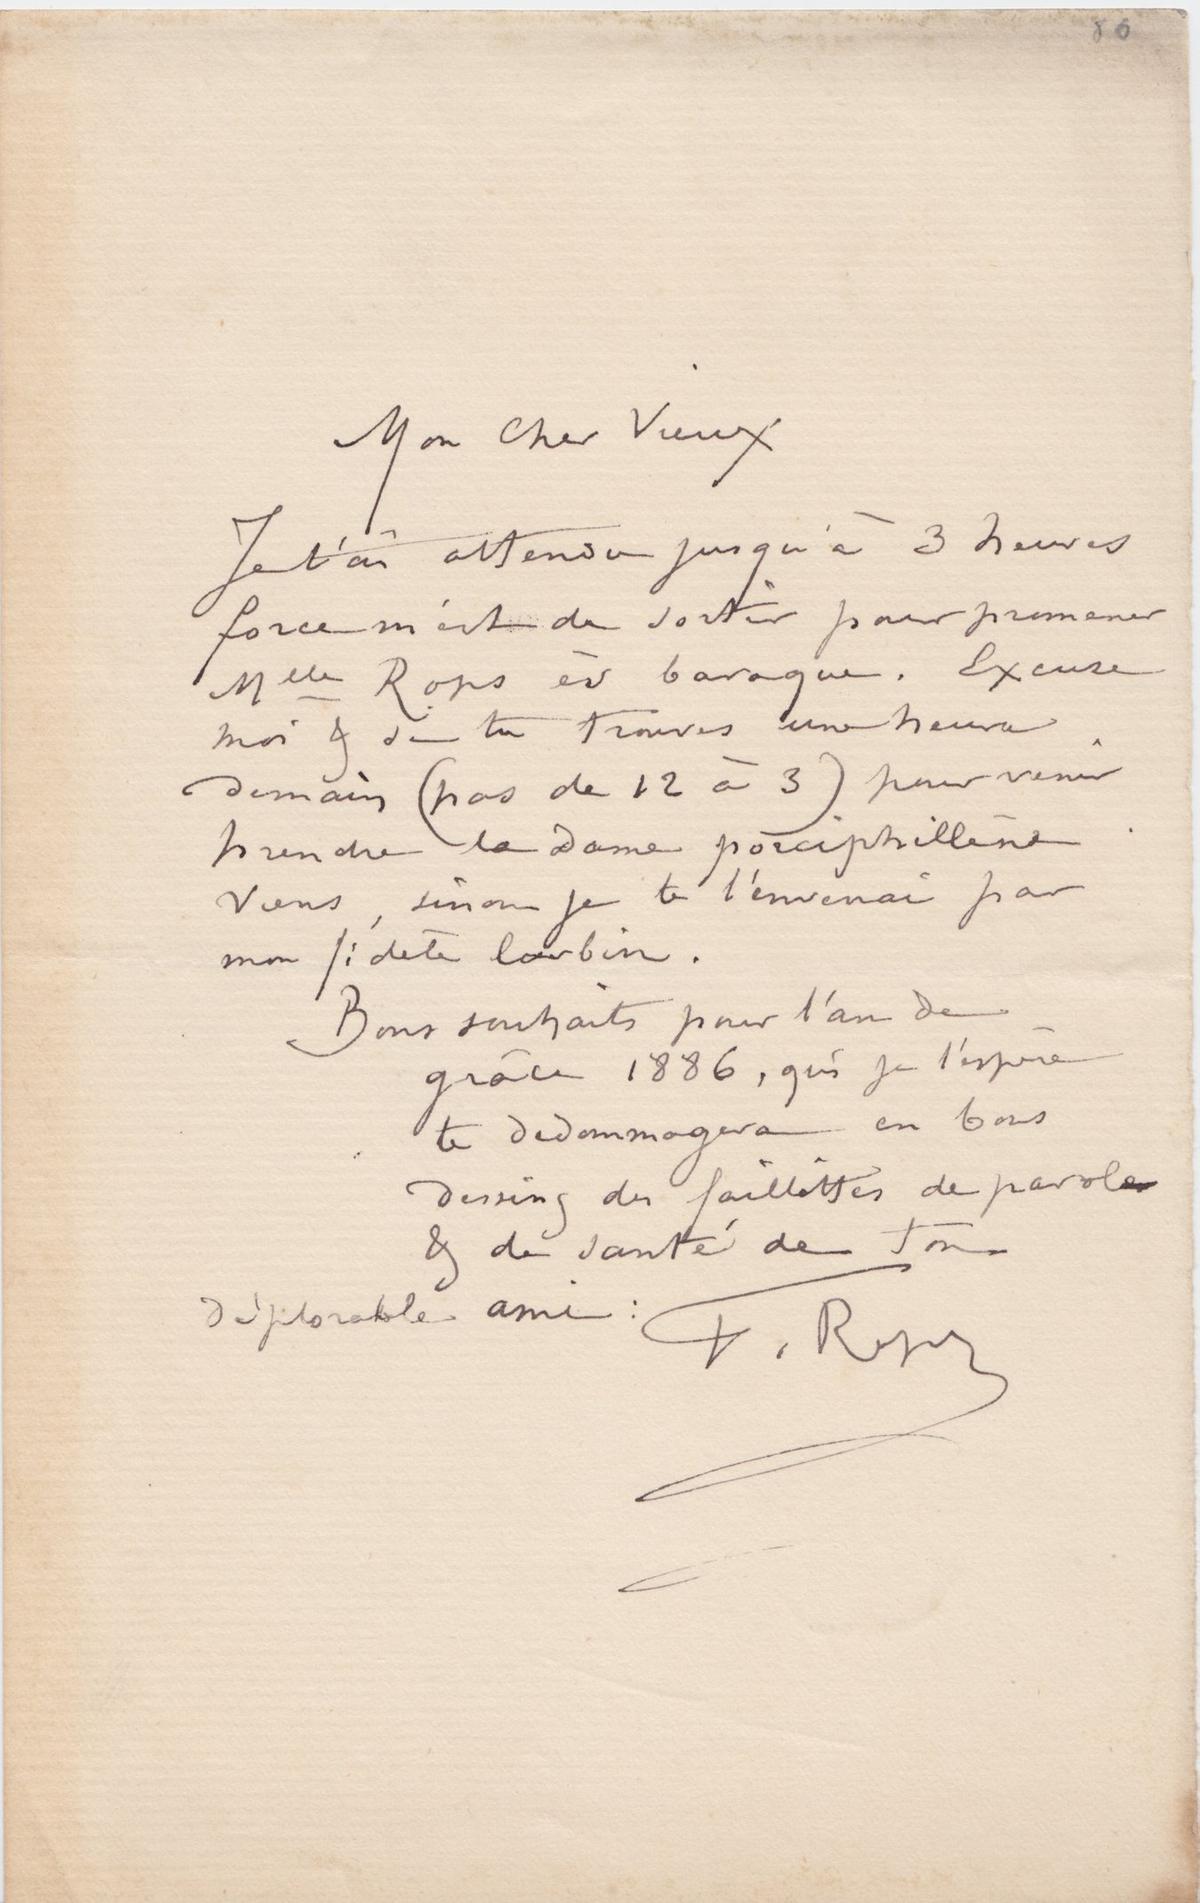 86
Mon Cher Vieux
Je t'ai attendu jusqu'à 3 heures
force m'est de sortir pour promener
Melle Rops ès baraque. Excuse
moi & si tu trouves une heure
demain (pas de 12 à 3) pour venir
prendre la Dame porciphillène
viens, sinon je te l'enverrai par
mon fidèle larbin.
Bons souhaits pour l'an de
grâce 1886, qui je l'espère
te dedommagera en bons
dessins des faillittes de parole
& de santé de Ton
déplorable ami :
F. Rops